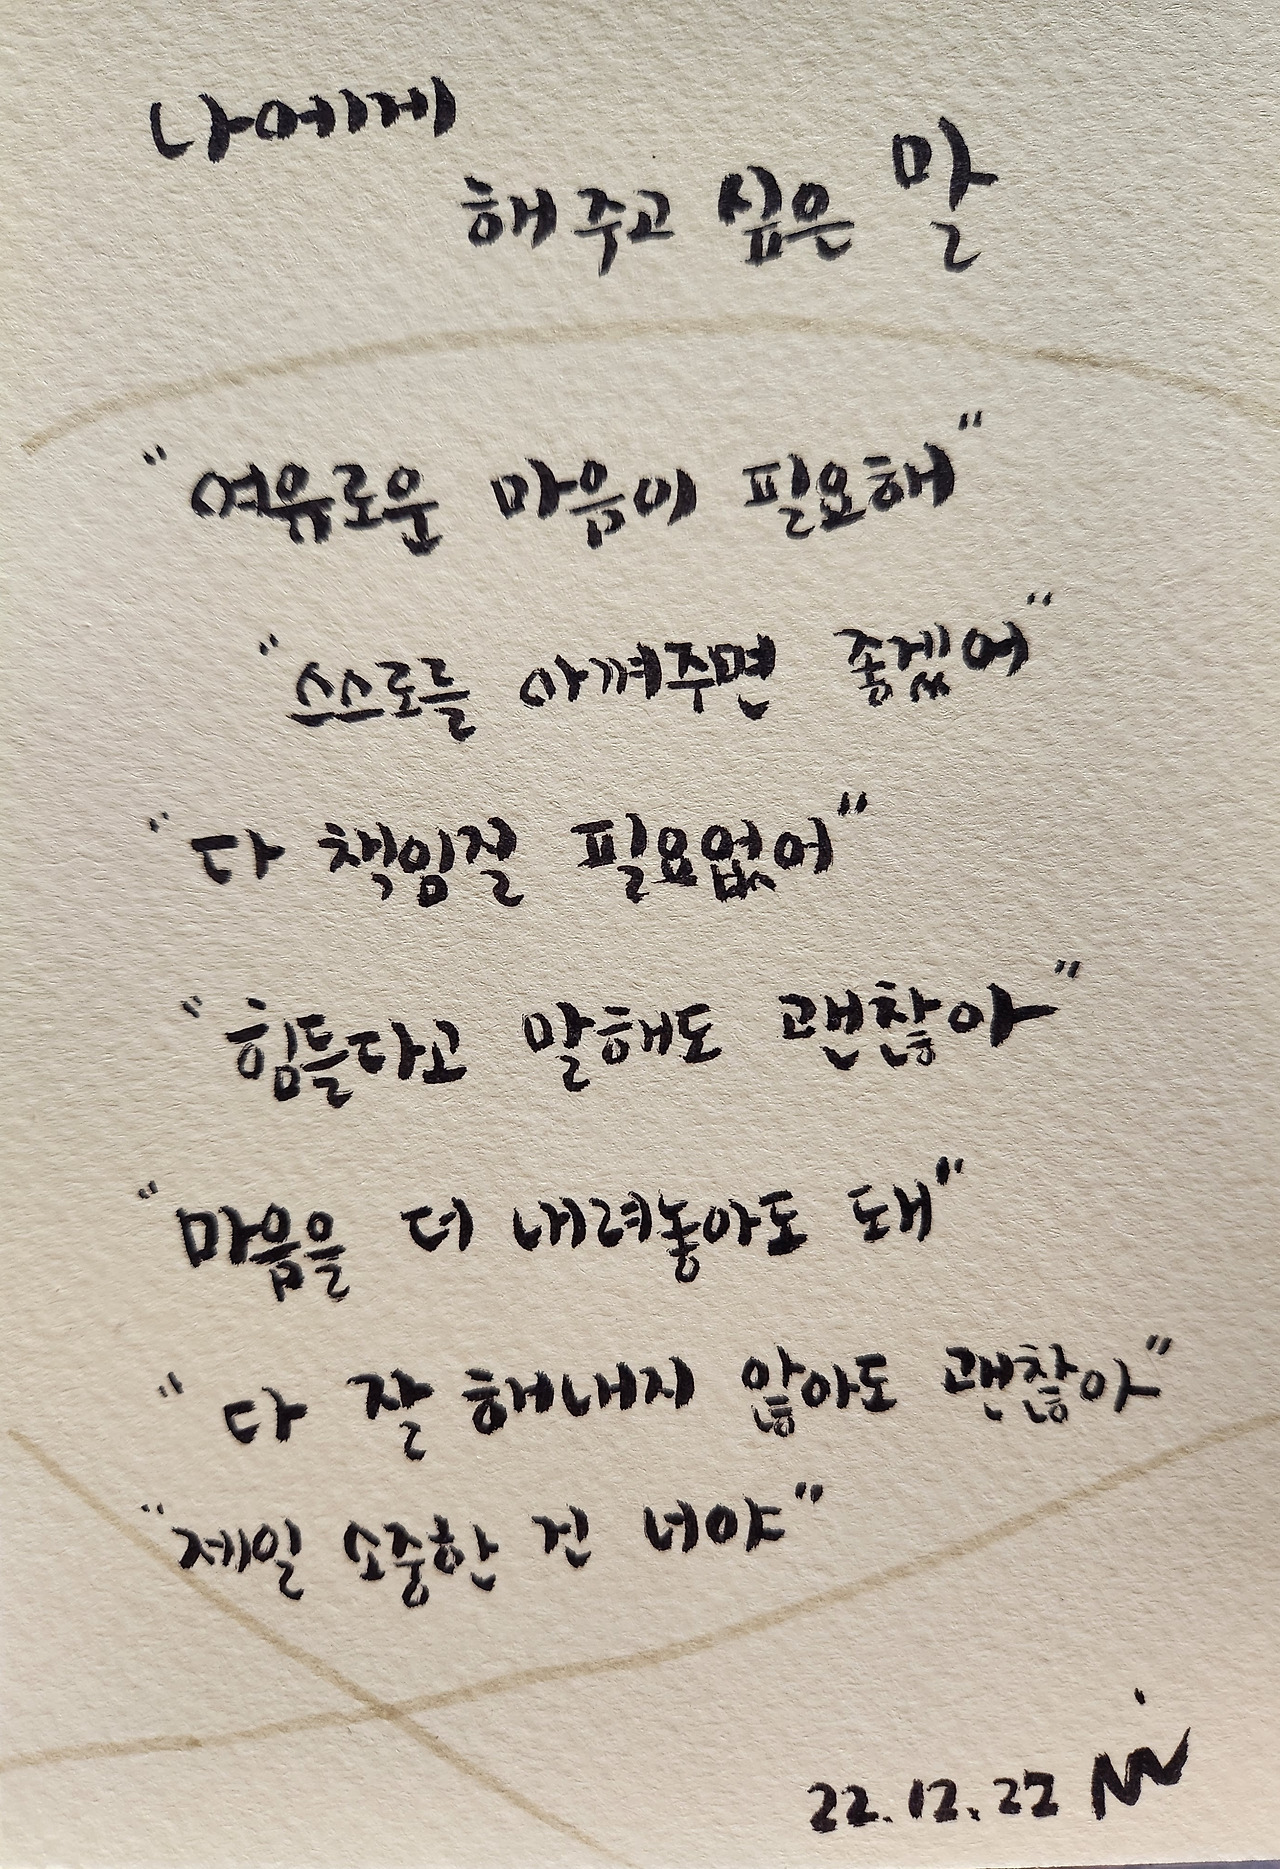 나에게
해주고 싶은 말
"여유로운 마음이 필요해"
"스스로를 아껴주면 좋겠어"
"다 책임질 필요없어"
"힘들다고 말해도 괜찮아"
"마음을 더 내려놓아도 돼"
"다 잘 해내지 않아도 괜찮아"
"제일 소중한 건 너야"
22.12.22